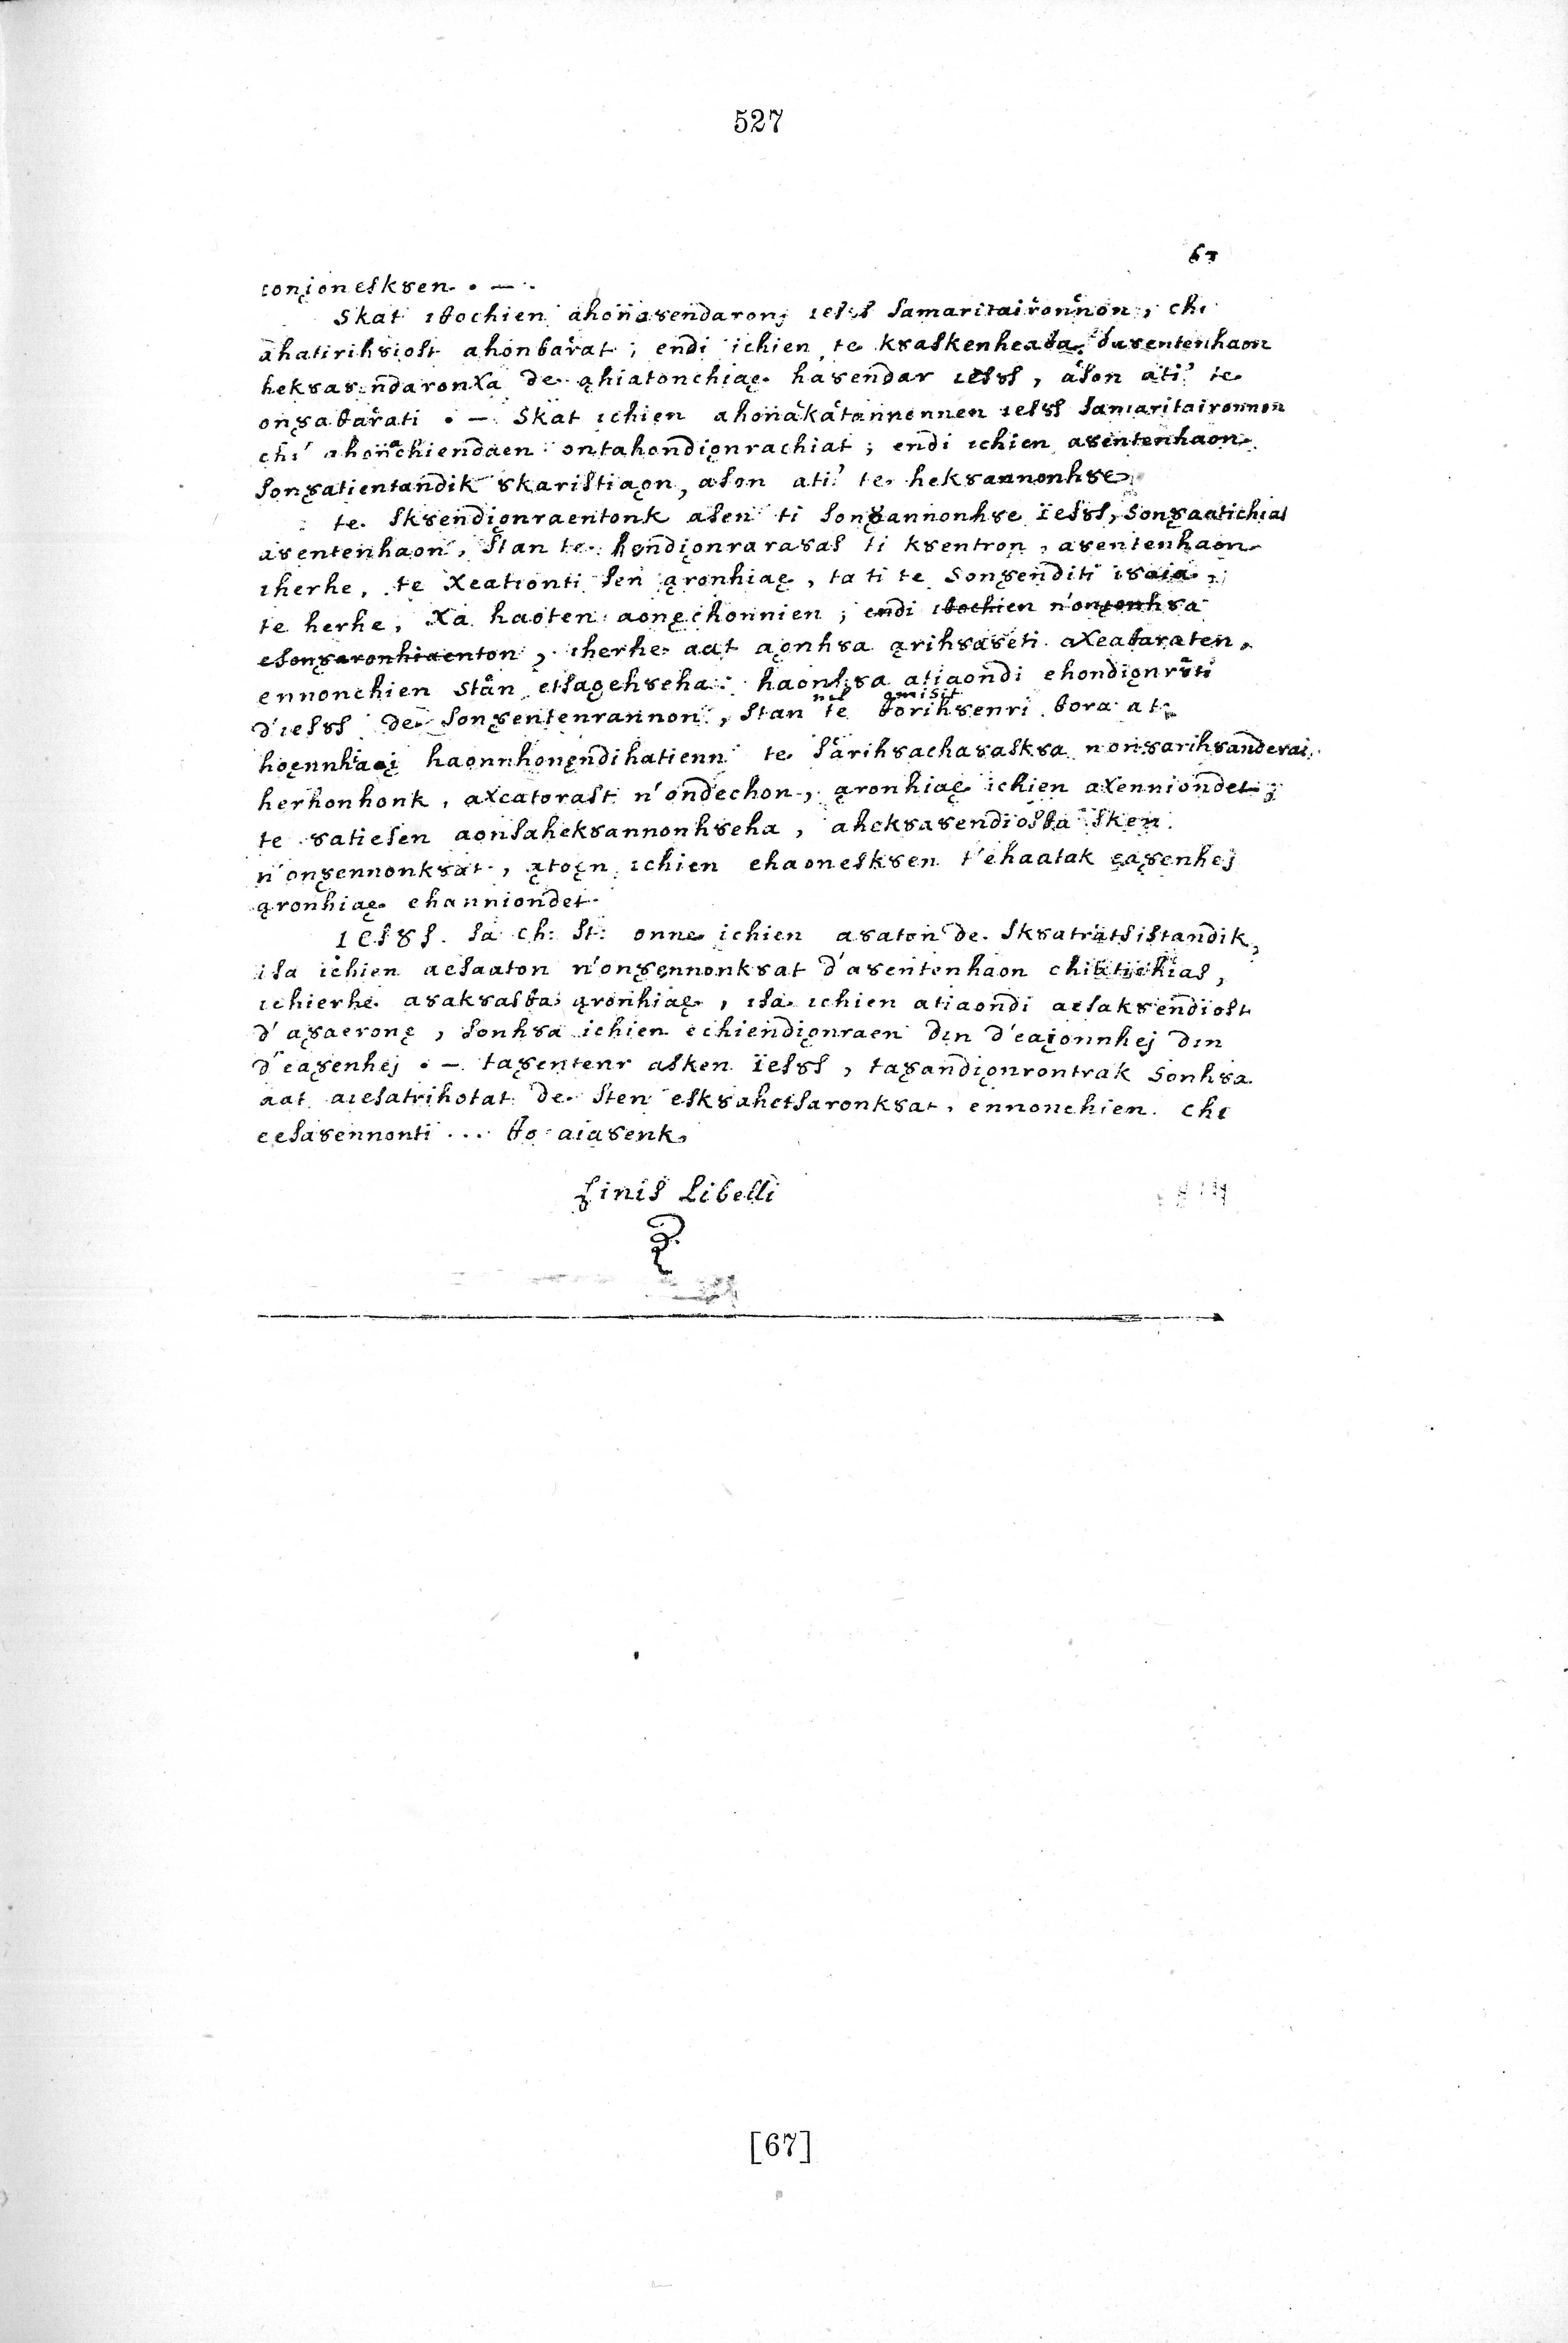 527
67
conįonesk8en. • —.
Skat iθochien ahona8endaronį ies8s samaritaironnon, chi
ahatirih8iost ahonθarat; endi ichien te k8askenheaθa d'a8entenhaon
hek8as8endaronxa de ąhiatonchiaę ha8endar ies8s, ason ati' te
on8aθarati • — Skat ichien ahonakatannennen ies8s samaritaironnon
chi' ahonachiendaen ontahondiǫnrachiat; endi ichien a8entenhaon
son8atientandik 8karistiaǫn, ason ati' te hek8annonh8e
te sk8endiǫnraentonk asen ti son8annonh8e ïes8s, son8aatichias
a8entenhaon, stan te hendiǫnrara8as ti k8entron, a8entenhaon
iherhe, te xeationti sen ąronhiaę, ta ti te son8enditi i8aia,
te herhe, xa haoten aonęchonnien; endi iθochien n'onǫnh8a
eson8aronhiaenton, iherhe aat aǫnh8a ąrih8a8eti axeaθaraten,
ennonchien stan etsagehseha: haonh8a atiaondi ehondiǫnr8ti
nil amisit
d'ies8s de son8entenrannon, stan te θorih8enri θora at
hoęnnhiaį haonnhonęndihatienn te sarih8acha8ask8a non8arih8anderai,
herhonhonk, axeatorast n'ondechon, ąronhiaę ichien axenniondet;
te 8atiesen aonsahek8annonh8eha, ahek8a8endiosθa sken
n'on8ennonk8at, ątoęn ichien ehaonesk8en t'ehaatak ea8enhej
ąronhiaę ehanniondet.
ies8s. sa ch: st: onne ichien a8aton de sk8atratsistandik,
isa ichien aesaaton n'on8ennonk8at d'a8entenhaon chiatichias,
ichierhe a8ak8asθa ąronhiaę, isa ichien atiaondi aesak8endiost
d'a8aeronę, sonh8a ichien echiendiǫnraen din d'eaįonnhej din
d'ea8enhej • — ta8entenr asken ïes8s, ta8andiǫnrontrak sonh8a
aat aiesatrihotat de sten esk8ahetsaronk8at, ennonchien chi
eesa8ennonti ... θo aia8enk.
finis Libelli
[67]